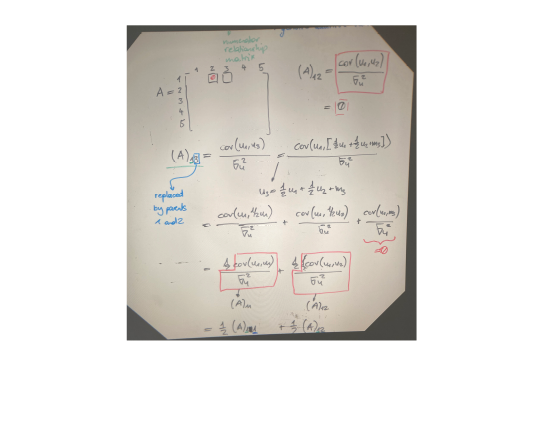 numerator
relationship
matrix
1 2 3 4 5
A = 1
2
3
4
5
(A)12 = cov(u1,u2) / σu²
= 0
(A)13 = cov(u1,u3) / σu² = cov(u1,[½u1+½u2+m3]) / σu²
u3 = ½ u1 + ½ u2 + m3
replaced
by parents
1 and 2
= cov(u1,½u1) / σu² + cov(u1,½u2) / σu² + cov(u1,m3) / σu²
0
= ½ cov(u1,u1) / σu² + ½ cov(u1,u2) / σu²
(A)11 (A)12
= ½ (A)11 + ½ (A)12